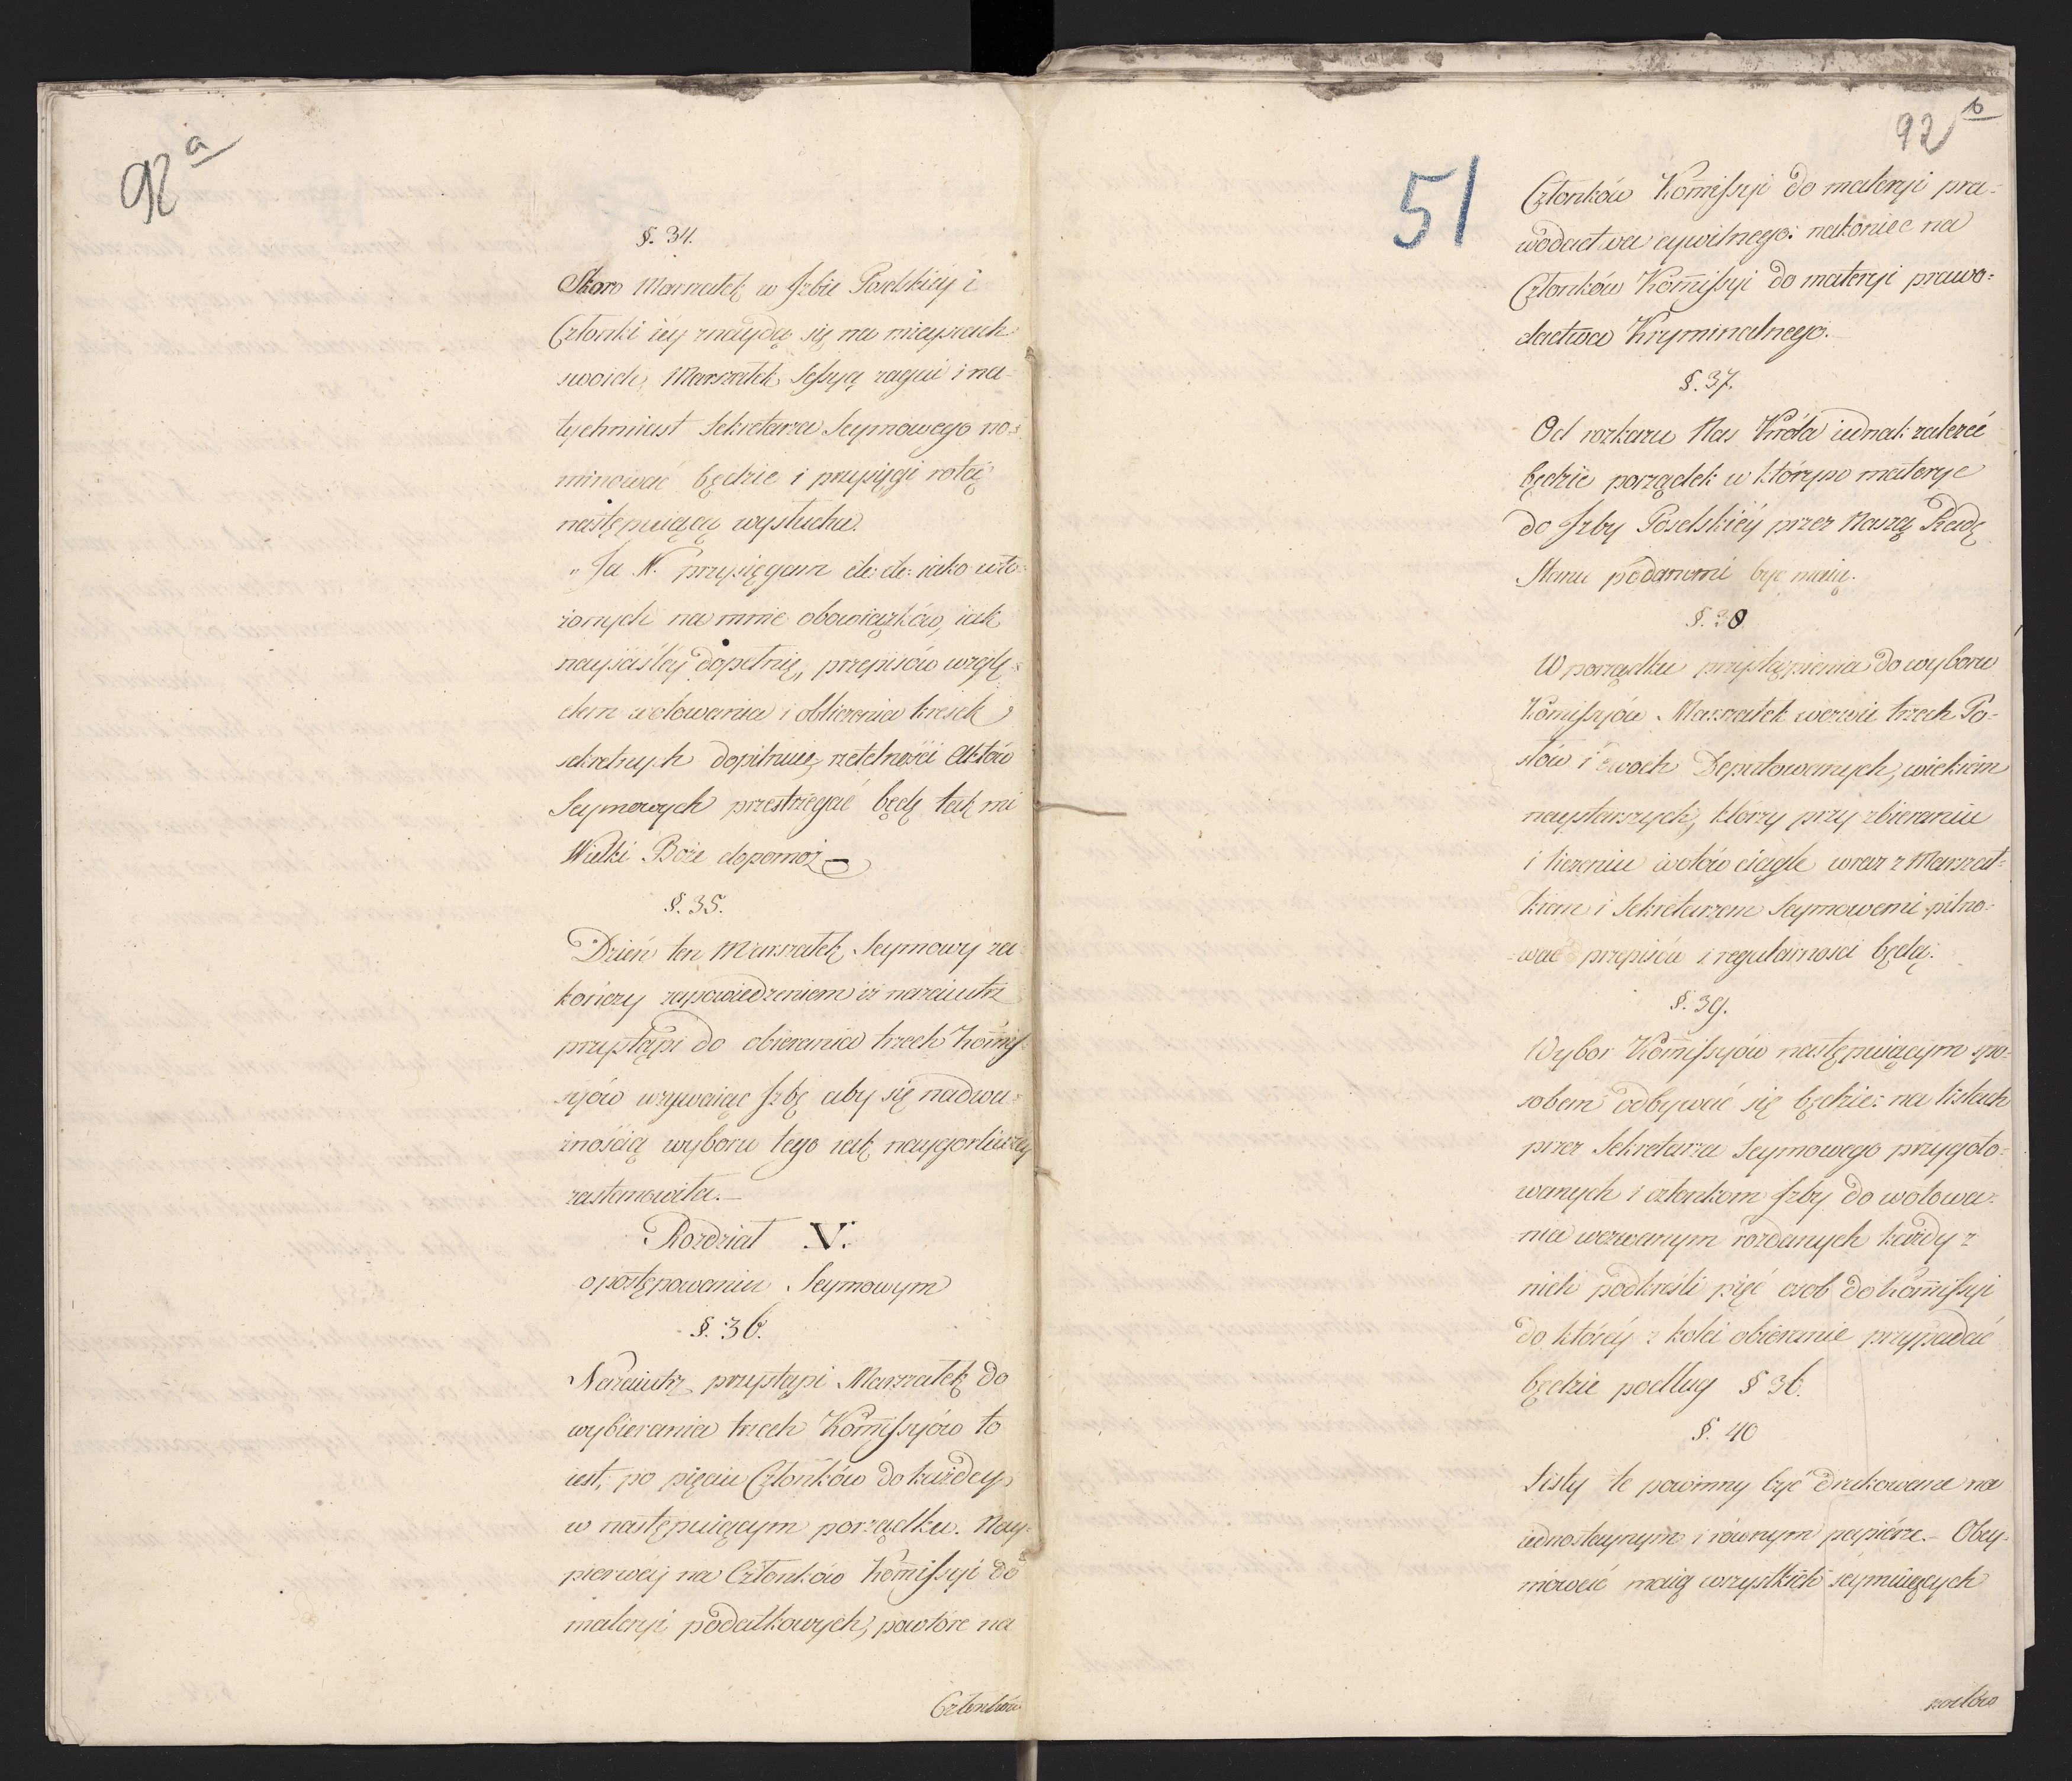 92 a
§. 34.
Skoro Marszałek w Izbie Poselskiéy i
Członki iéy znaydą się na mieyscach
swoich, Marszałek Sessyą zagai i na-
tychmiast Sekretarza Seymowego no=
minować będzie i przysięgi rotę
następuiącą wysłucha.
„Ja N. przysięgam etc: etc: iako wło-
żonych na mnie obowiązków, iak
nayściśléy dopełnię, przepisów wzglę=
dem wotowania i obliczenia kresek
sekretnych dopilnuię, rzetelności Aktów
Seymowych przestrzegać będę tak mi
Wielki Boże dopomoż
§. 35.
Dzień ten Marszałek Seymowy za-
kończy zapowiedzeniem iż nazaiutrz
przystąpi do obierania trzech Kom̅is-
syiów wzywaiąc Izbę aby się nad wa=
żnością wyboru tego iak naygorliwiéy
zastanowiła.—
Rozdział V.
o postępowaniu Seymowym
§. 36.
Nazaiutrz przystąpi Marszałek do
wybierania trzech Kom̅issyiów to
iest; po pięciu Członków do każdey
w następuiącym porządku. Nay-
pierwéy na Członków Kom̅issyi do
materyi podatkowych, powtóre na
Członków
92 b
51
Członków Kom̅issyi do materyi pra=
wodactwa cywilnego: nakoniec na
Członków Kom̅issyi do materyi prawo=
dactwa Kryminalnego.—
§. 37.
Od rozkazu Nas Króla iednak zależeć
będzie porządek w którym materye
do Izby Poselskiéy przez Naszą Radę
Stanu podanemi być maią.
§. 38
W porządku przystąpienia do wyboru
Kom̅issyiów Marszałek wezwie trzech Po-
słów i dwoch Deputowanych, wiekiem
naystarszych, którzy przy zbieraniu
i liczeniu wotów ciągle wraz z Marszał-
kiem i Sekretarzem Seymowemi pilno=
wać przepisów i regularnosci będą.
§. 39.
Wybor Kom̅issyiów następuiącym spo-
sobem odbywać się będzie: na listach
przez Sekretarza Seymowego przygoto=
wanych i członkom Izby do wotowa-
nia wezwanym rozdanych każdy z
nich podkreśli pięć osob do Kom̅issyi
do któréy z kolei obieranie przypadać
będzie podług § 36.
§. 40
Listy te powinny być drukowane na
iednostaynym i równym papiérze.— Obey-
mować maią wszystkich seymuiących